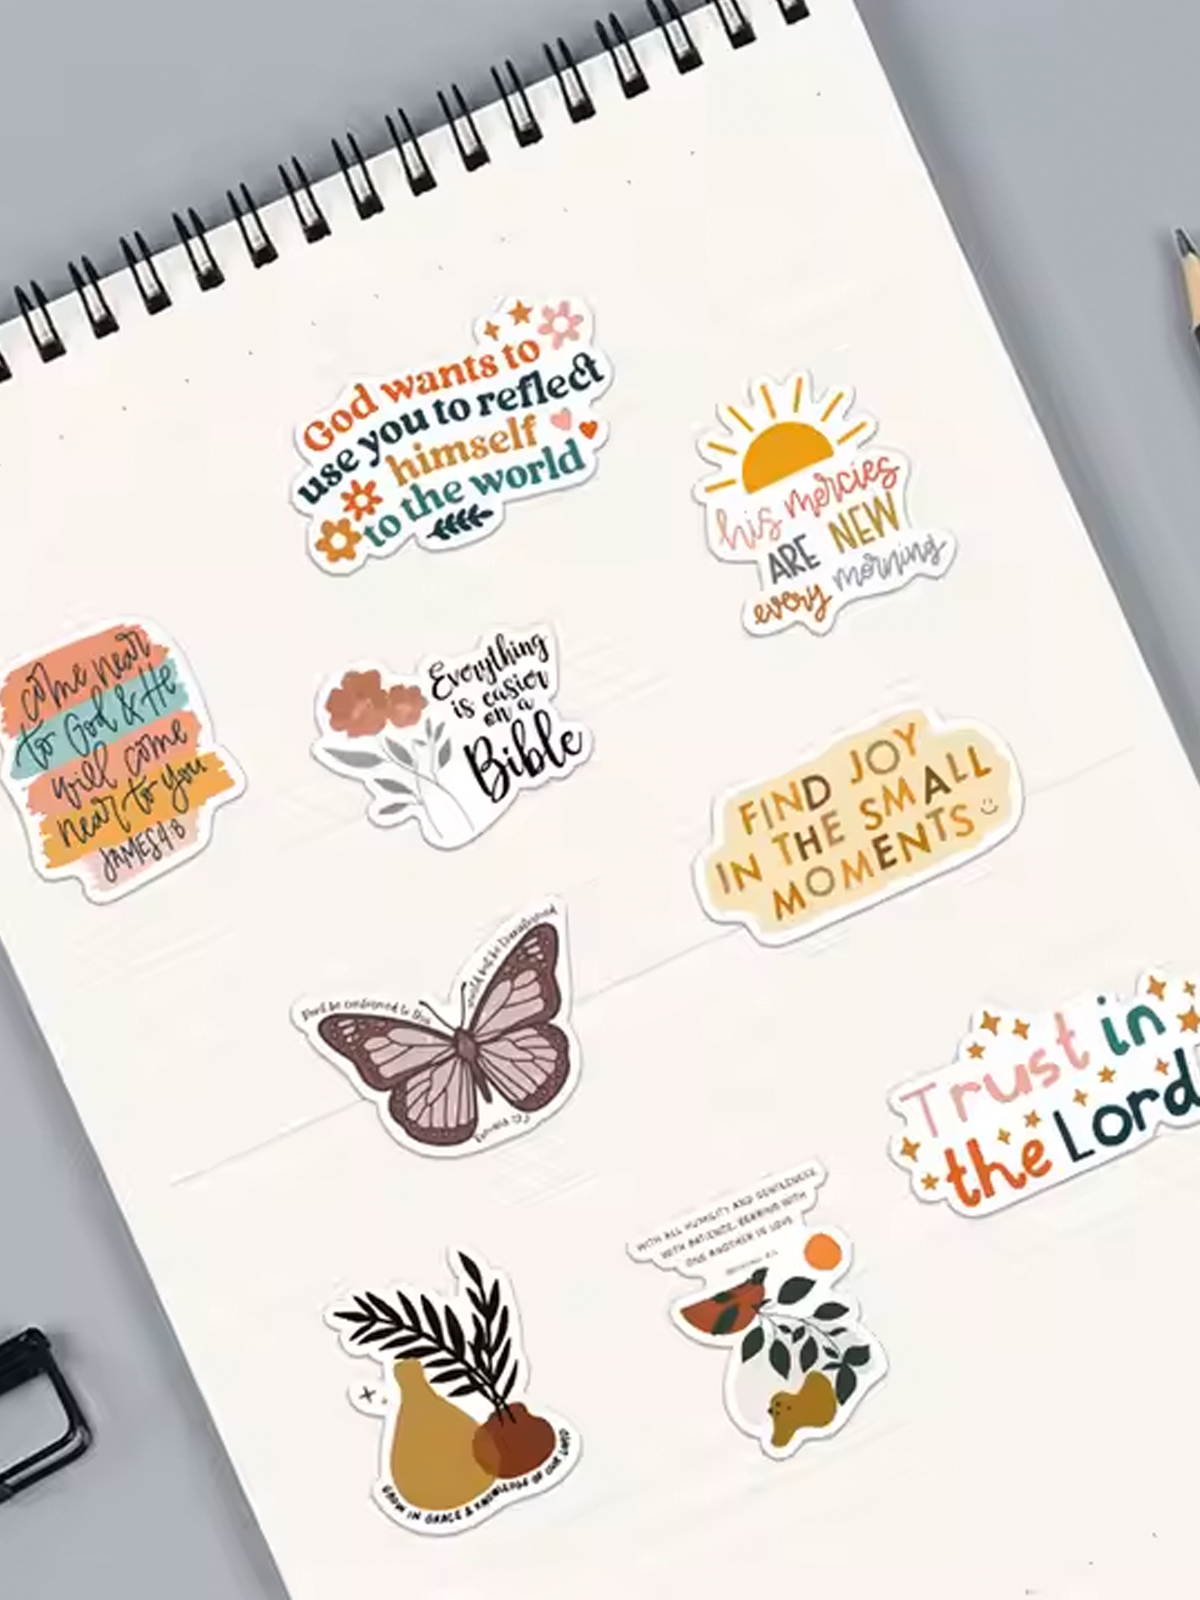 God wants to
use you to reflect
himself
to the world
his mercies
ARE NEW
every morning
come near
to God & He
will come
near to you
JAMES 4:8
Everything
is easier
on a
Bible
FIND JOY
IN THE SMALL
MOMENTS
be conformed to this
world but be transformed
Trust in
the Lord
WITH ALL HUMILITY AND GENTLENESS,
WITH PATIENCE, BEARING WITH
ONE ANOTHER IN LOVE
GROW IN GRACE & KNOWLEDGE OF OUR LORD